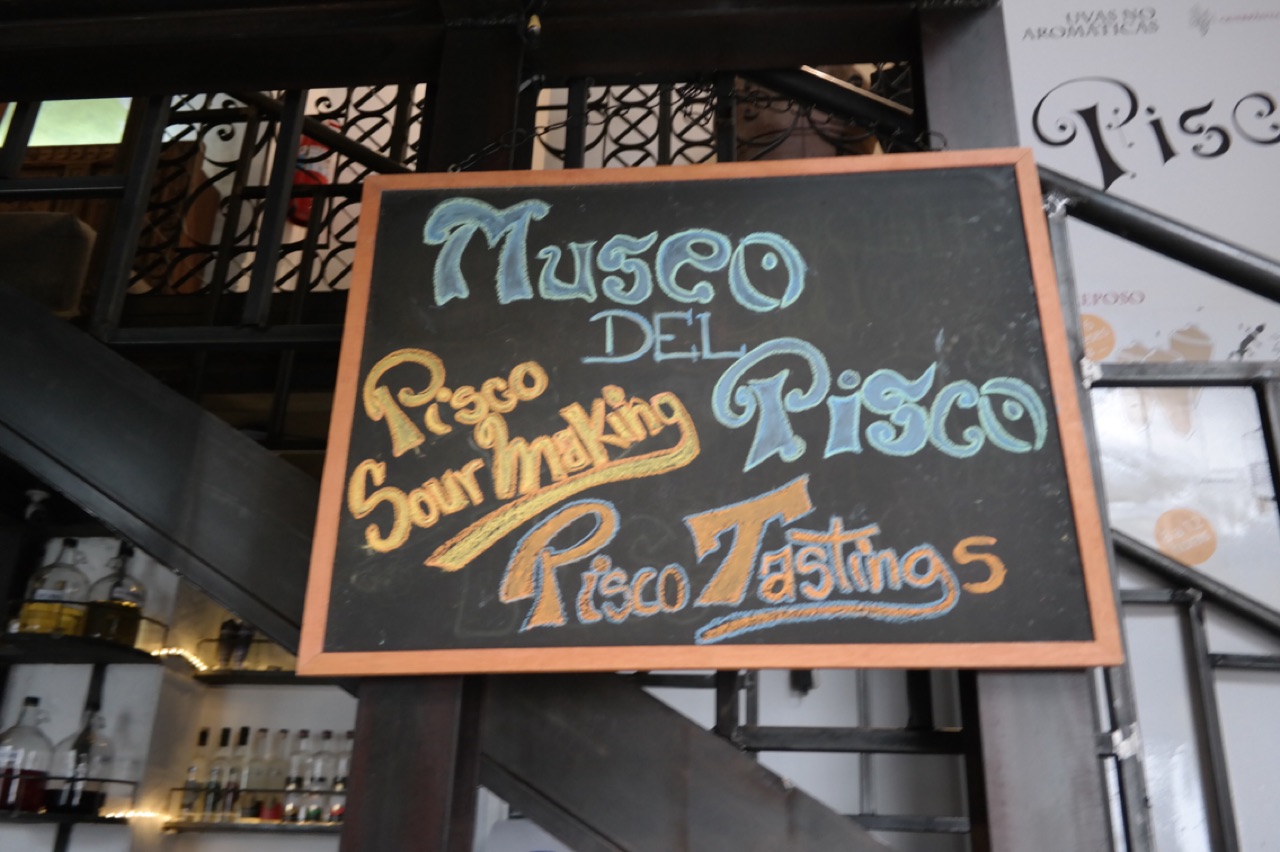 UVAS NO
AROMÁTICAS
Pisc
Museo
DEL
Pisco
Pisco
Sour Making
Pisco Tastings
EPOSO